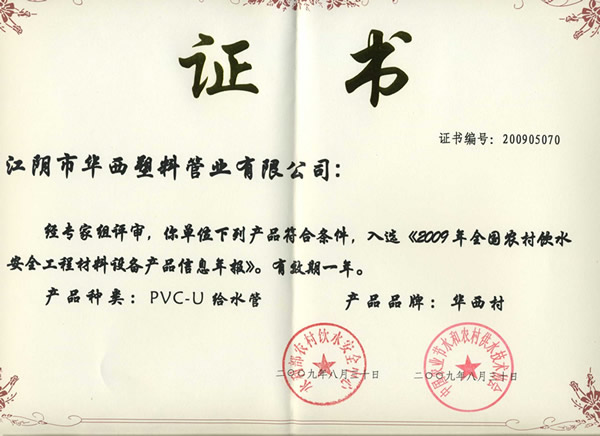 证书
证书编号：200905070
江阴市华西塑料管业有限公司：
经专家组评审，你单位下列产品符合条件，入选《2009年全国农村饮水
安全工程材料设备产品信息年报》。有效期一年。
产品种类：PVC-U给水管 产品品牌：华西村
水利部农村饮水安全中心
二〇〇九年八月三十日
中国农业节水和农村供水技术协会
二〇〇九年八月三十日